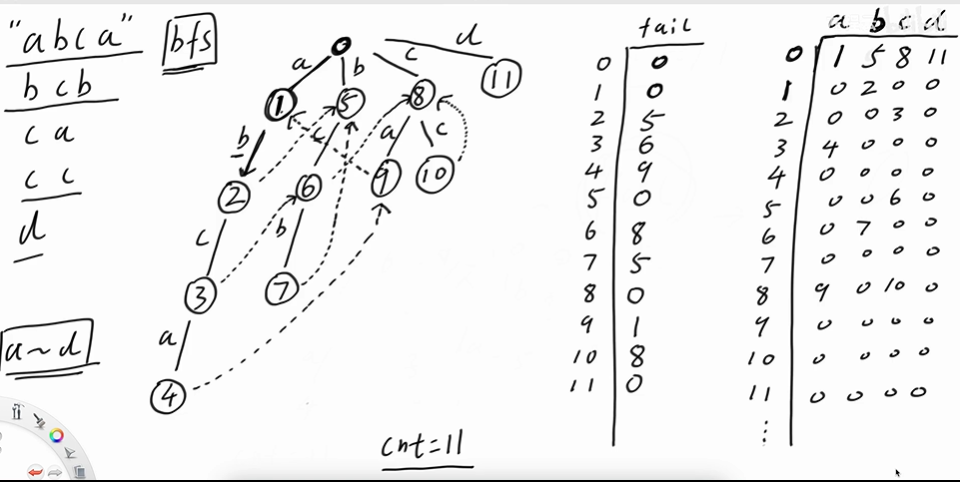 "abca"
bcb
ca
cc
d
a~d
bfs
a
b
c
d
1
5
8
11
b
c
a
c
2
6
9
10
c
b
3
7
a
4
cnt=11
tail
0 0
1 0
2 5
3 6
4 9
5 0
6 8
7 5
8 0
9 1
10 8
11 0
a b c d
0 1 5 8 11
1 0 2 0 0
2 0 0 3 0
3 4 0 0 0
4 0 0 0 0
5 0 0 6 0
6 0 7 0 0
7 0 0 0 0
8 9 0 10 0
9 0 0 0 0
10 0 0 0 0
11 0 0 0 0
⋮